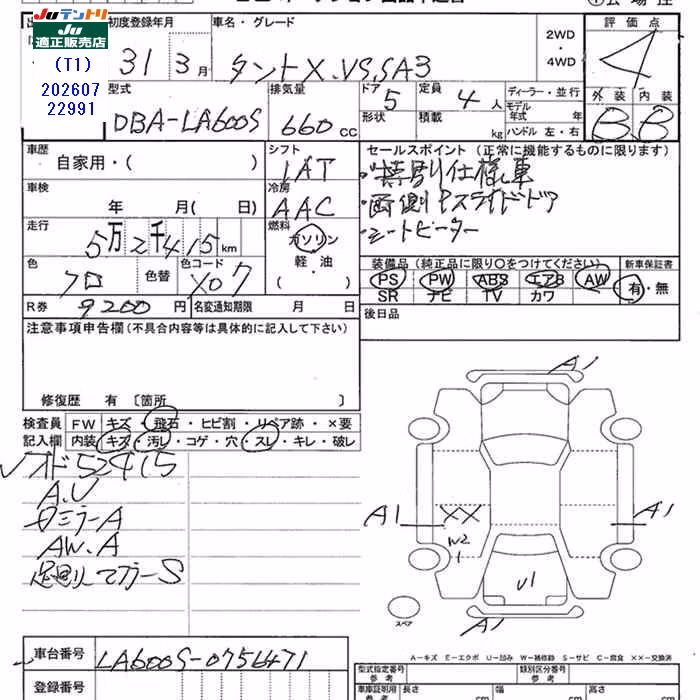 Juテントリ
Ju
適正販売店
(T1)
202607
22991
初度登録年月 車名・グレード 評価点
31 3月 タントX.VS,SA3 2WD・4WD 4
型式 排気量 ドア 定員 ディーラー・並行 外装 内装
DBA-LA600S 660 CC 5 4人 モデル年式 年 B B
形状 積載 kg ハンドル 左・右
車歴 シフト セールスポイント (正常に機能するものに限ります)
自家用・( ) IAT ・特別仕様車
車検 冷房 ・両側Pスライドドア
年 月( 日) AAC ・シートヒーター
走行 燃料
5万2千415km ガソリン
軽・油
( )
装備品 (純正品に限り○をつけてください) 新車保証書
色 クロ 色替 色コード X07 PS PW ABS エアB AW 有・無
SR ナビ TV カワ
R券 9200円 名変通知期限 月 日
後日品
注意事項申告欄 (不具合内容等は具体的に記入して下さい)
修復歴 有 〔箇所 〕
検査員 FW キズ・飛石・ヒビ割・リペア跡・×要
記入欄 内装 キズ・汚レ・コゲ・穴・スレ・キレ・破レ
オド52415
A.U
ミラーA
AW.A
A1
A1 XX A1
W2
1
U1
A1
スペア
A-キズ E-エクボ U-凹み W-補修跡 S-サビ C-腐食 ××-交換済
車台番号 LA600S-0756471
型式指定番号 参考 類別区分番号 参考
登録番号
車庫証明用 参考 長さ cm 幅 cm 高さ cm